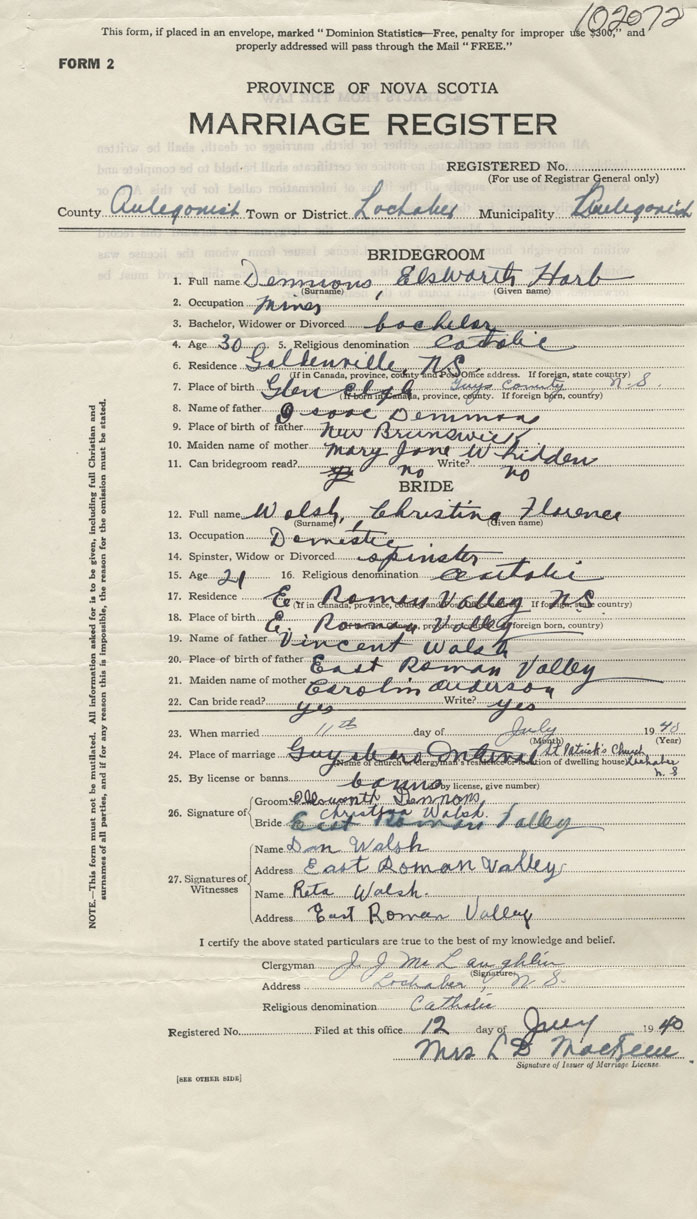 102072
This form, if placed in an envelope, marked "Dominion Statistics—Free, penalty for improper use $300," and
properly addressed will pass through the Mail "FREE."
FORM 2
PROVINCE OF NOVA SCOTIA
MARRIAGE REGISTER
REGISTERED No.
(For use of Registrar General only)
County Antegonish Town or District Lochaber Municipality Antegonish
BRIDEGROOM
1. Full name Demmons, Elsworth Harb
(Surname) (Given name)
2. Occupation Miner
3. Bachelor, Widower or Divorced bachelor
4. Age 30 5. Religious denomination Catholic
6. Residence Goldenville, N.S.
(If in Canada, province, county and Post Office address. If foreign, state country)
7. Place of birth Glen Guys County, N.S.
(If born in Canada, province, county. If foreign born, country)
8. Name of father Isaac Demmons
9. Place of birth of father New Brunswick
10. Maiden name of mother Mary Jane Whidden
11. Can bridegroom read? no Write? no
BRIDE
12. Full name Walsh, Christina Florence
(Surname) (Given name)
13. Occupation Domestic
14. Spinster, Widow or Divorced spinster
15. Age 21 16. Religious denomination Catholic
17. Residence E. Roman Valley N.S.
(If in Canada, province, county and Post Office address. If foreign, state country)
18. Place of birth E. Roman Valley
(If born in Canada, province, county. If foreign born, country)
19. Name of father Vincent Walsh
20. Place of birth of father East Roman Valley
21. Maiden name of mother Carolin Anderson
22. Can bride read? yes Write? yes
23. When married 11th day of July 1940
(Month) (Year)
24. Place of marriage Guysboro St Patrick's Church,
(Name of church or clergyman's residence or location of dwelling house) Lochaber
N.S
25. By license or banns banns
(If by license, give number)
26. Signature of
Groom Ellsworth Demmons
Christina Walsh.
Bride East Roman Valley
27. Signatures of
Witnesses
Name Dan Walsh
Address East Roman Valley
Name Reta Walsh.
Address East Roman Valley
I certify the above stated particulars are true to the best of my knowledge and belief.
Clergyman J. J. McLaughlin
(Signature)
Address Lochaber, N.S.
Religious denomination Catholic
Registered No. Filed at this office 12 day of July 1940
Mrs L D MacKeen
Signature of Issuer of Marriage License.
[SEE OTHER SIDE]
NOTE.—This form must not be mutilated. All information asked for is to be given, including full Christian and
surnames of all parties, and if for any reason this is impossible, the reason for the omission must be stated.